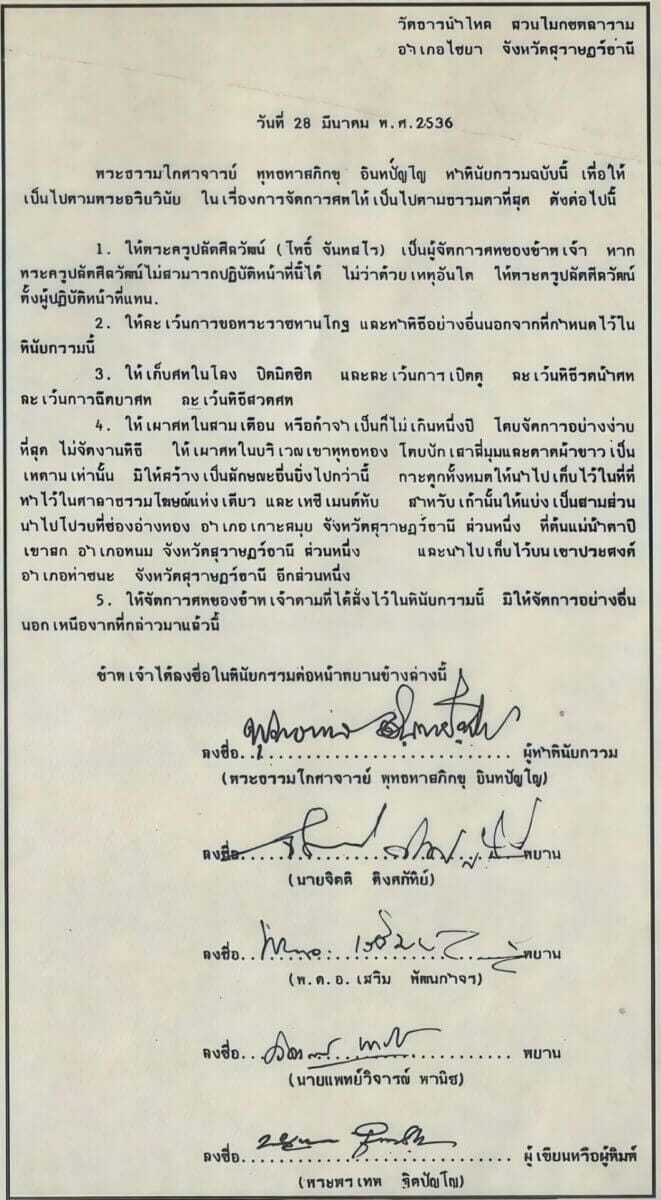 วัดธารน้ำไหล สวนโมกขพลาราม
อำเภอไชยา จังหวัดสุราษฎร์ธานี
วันที่ 28 มีนาคม พ.ศ.2536
พระธรรมโกศาจารย์ พุทธทาสภิกขุ อินทปัญโญ ทำพินัยกรรมฉบับนี้ เพื่อให้
เป็นไปตามพระอริยวินัย ในเรื่องการจัดการศพให้เป็นไปตามธรรมดาที่สุด ดังต่อไปนี้
1. ให้พระครูปลัดศีลวัฒน์ (โพธิ์ จันทสโร) เป็นผู้จัดการศพของข้าพเจ้า หาก
พระครูปลัดศีลวัฒน์ไม่สามารถปฏิบัติหน้าที่นี้ได้ ไม่ว่าด้วยเหตุอันใด ให้พระครูปลัดศีลวัฒน์
ตั้งผู้ปฏิบัติหน้าที่แทน.
2. ให้ละเว้นการขอพระราชทานโกฐ และทำพิธีอย่างอื่นนอกจากที่กำหนดไว้ใน
พินัยกรรมนี้
3. ให้เก็บศพในโลง ปิดมิดชิด และละเว้นการเปิดดู ละเว้นพิธีรดน้ำศพ
ละเว้นการฉีดยาศพ ละเว้นพิธีสวดศพ
4. ให้เผาศพในสามเดือน หรือถ้าจำเป็นก็ไม่เกินหนึ่งปี โดยจัดการอย่างง่าย
ที่สุด ไม่จัดงานพิธี ให้เผาศพในบริเวณเขาพุทธทอง โดยปักเสาสี่มุมและดาดผ้าขาวเป็น
เพดานเท่านั้น มิให้สร้างเป็นลักษณะอื่นยิ่งไปกว่านี้ กระดูกทั้งหมดให้นำไปเก็บไว้ในที่ที่
ทำไว้ในศาลาธรรมโฆษณ์แห่งเดียว และเทซีเมนต์ทับ สำหรับเถ้านั้นให้แบ่งเป็นสามส่วน
นำไปโปรยที่ช่องอ่างทอง อำเภอเกาะสมุย จังหวัดสุราษฎร์ธานี ส่วนหนึ่ง ที่ต้นแม่น้ำตาปี
เขาสก อำเภอพนม จังหวัดสุราษฎร์ธานี ส่วนหนึ่ง และนำไปเก็บไว้บนเขาประสงค์
อำเภอท่าชนะ จังหวัดสุราษฎร์ธานี อีกส่วนหนึ่ง
5. ให้จัดการศพของข้าพเจ้าตามที่ได้สั่งไว้ในพินัยกรรมนี้ มิให้จัดการอย่างอื่น
นอกเหนือจากที่กล่าวมาแล้วนี้
ข้าพเจ้าได้ลงชื่อในพินัยกรรมต่อหน้าพยานข้างล่างนี้
ลงชื่อ.................................ผู้ทำพินัยกรรม
(พระธรรมโกศาจารย์ พุทธทาสภิกขุ อินทปัญโญ)
ลงชื่อ.................................พยาน
(นายจิตติ ติงศภัทิย์)
ลงชื่อ.................................พยาน
(พ.ต.อ.เสริม พัฒนกำจร)
ลงชื่อ.................................พยาน
(นายแพทย์วิจารณ์ พานิช)
ลงชื่อ.................................ผู้เขียนหรือผู้พิมพ์
(พระพรเทพ ฐิตปัญโญ)